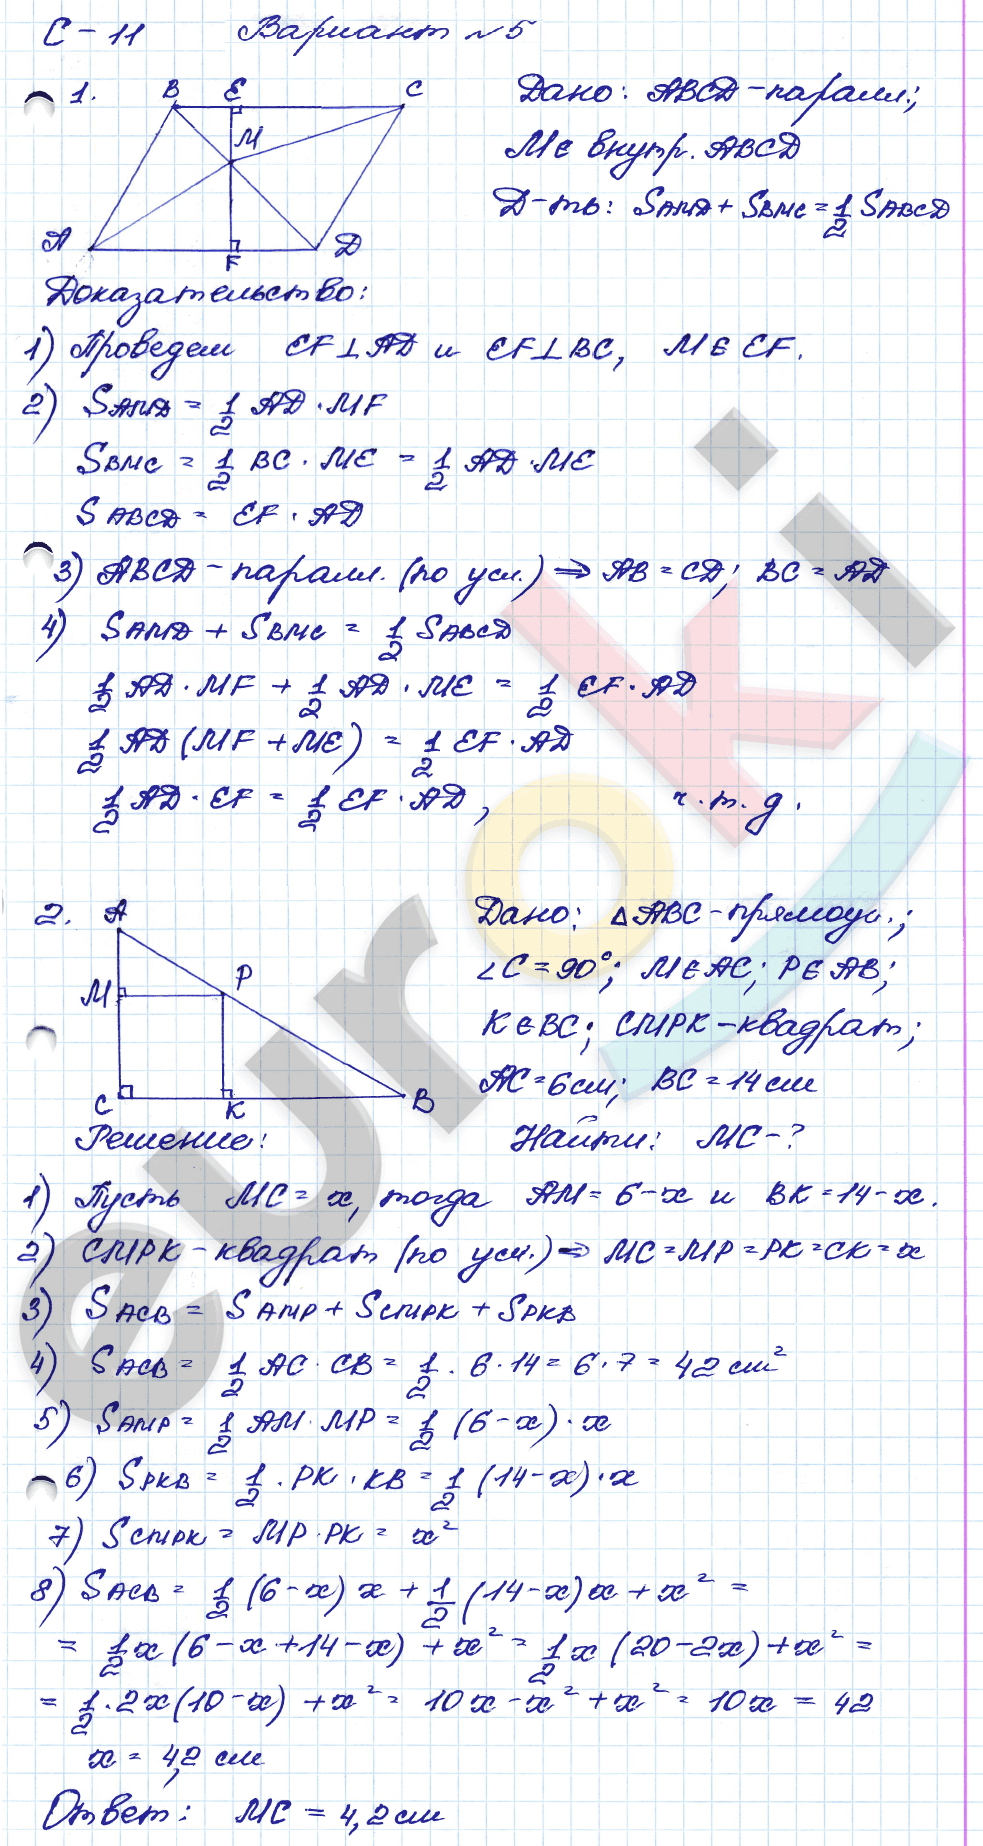 С-11 Вариант №5
1. B E C
M
A F D
Дано: ABCD-паралл.;
M∈ внутр. ABCD
Д-ть: SAMD + SBMC = 1/2 SABCD
Доказательство:
1) Проведем EF⊥AD и EF⊥BC, M∈EF.
2) SAMD = 1/2 AD·MF
SBMC = 1/2 BC·ME = 1/2 AD·ME
SABCD = EF·AD
3) ABCD-паралл. (по усл.) ⇒ AB=CD; BC=AD
4) SAMD + SBMC = 1/2 SABCD
1/2 AD·MF + 1/2 AD·ME = 1/2 EF·AD
1/2 AD(MF+ME) = 1/2 EF·AD
1/2 AD·EF = 1/2 EF·AD, ч.т.д.
2. A
M P
C K B
Дано: △ABC-прямоуг.;
∠C=90°; M∈AC; P∈AB;
K∈BC; CMPK-квадрат;
AC=6см; BC=14см
Решение: Найти: MC-?
1) Пусть MC=x, тогда AM=6-x и BK=14-x.
2) CMPK-квадрат (по усл.) ⇒ MC=MP=PK=CK=x
3) SACB = SAMP + SCMPK + SPKB
4) SACB = 1/2 AC·CB = 1/2·6·14=6·7=42 см²
5) SAMP = 1/2 AM·MP = 1/2 (6-x)·x
6) SPKB = 1/2·PK·KB = 1/2 (14-x)·x
7) SCMPK = MP·PK = x²
8) SACB = 1/2 (6-x)x + 1/2 (14-x)x + x² =
= 1/2 x(6-x+14-x) + x² = 1/2 x(20-2x)+x² =
= 1/2·2x(10-x) + x² = 10x-x²+x² = 10x = 42
x = 4,2 см
Ответ: MC = 4,2 см
euroki